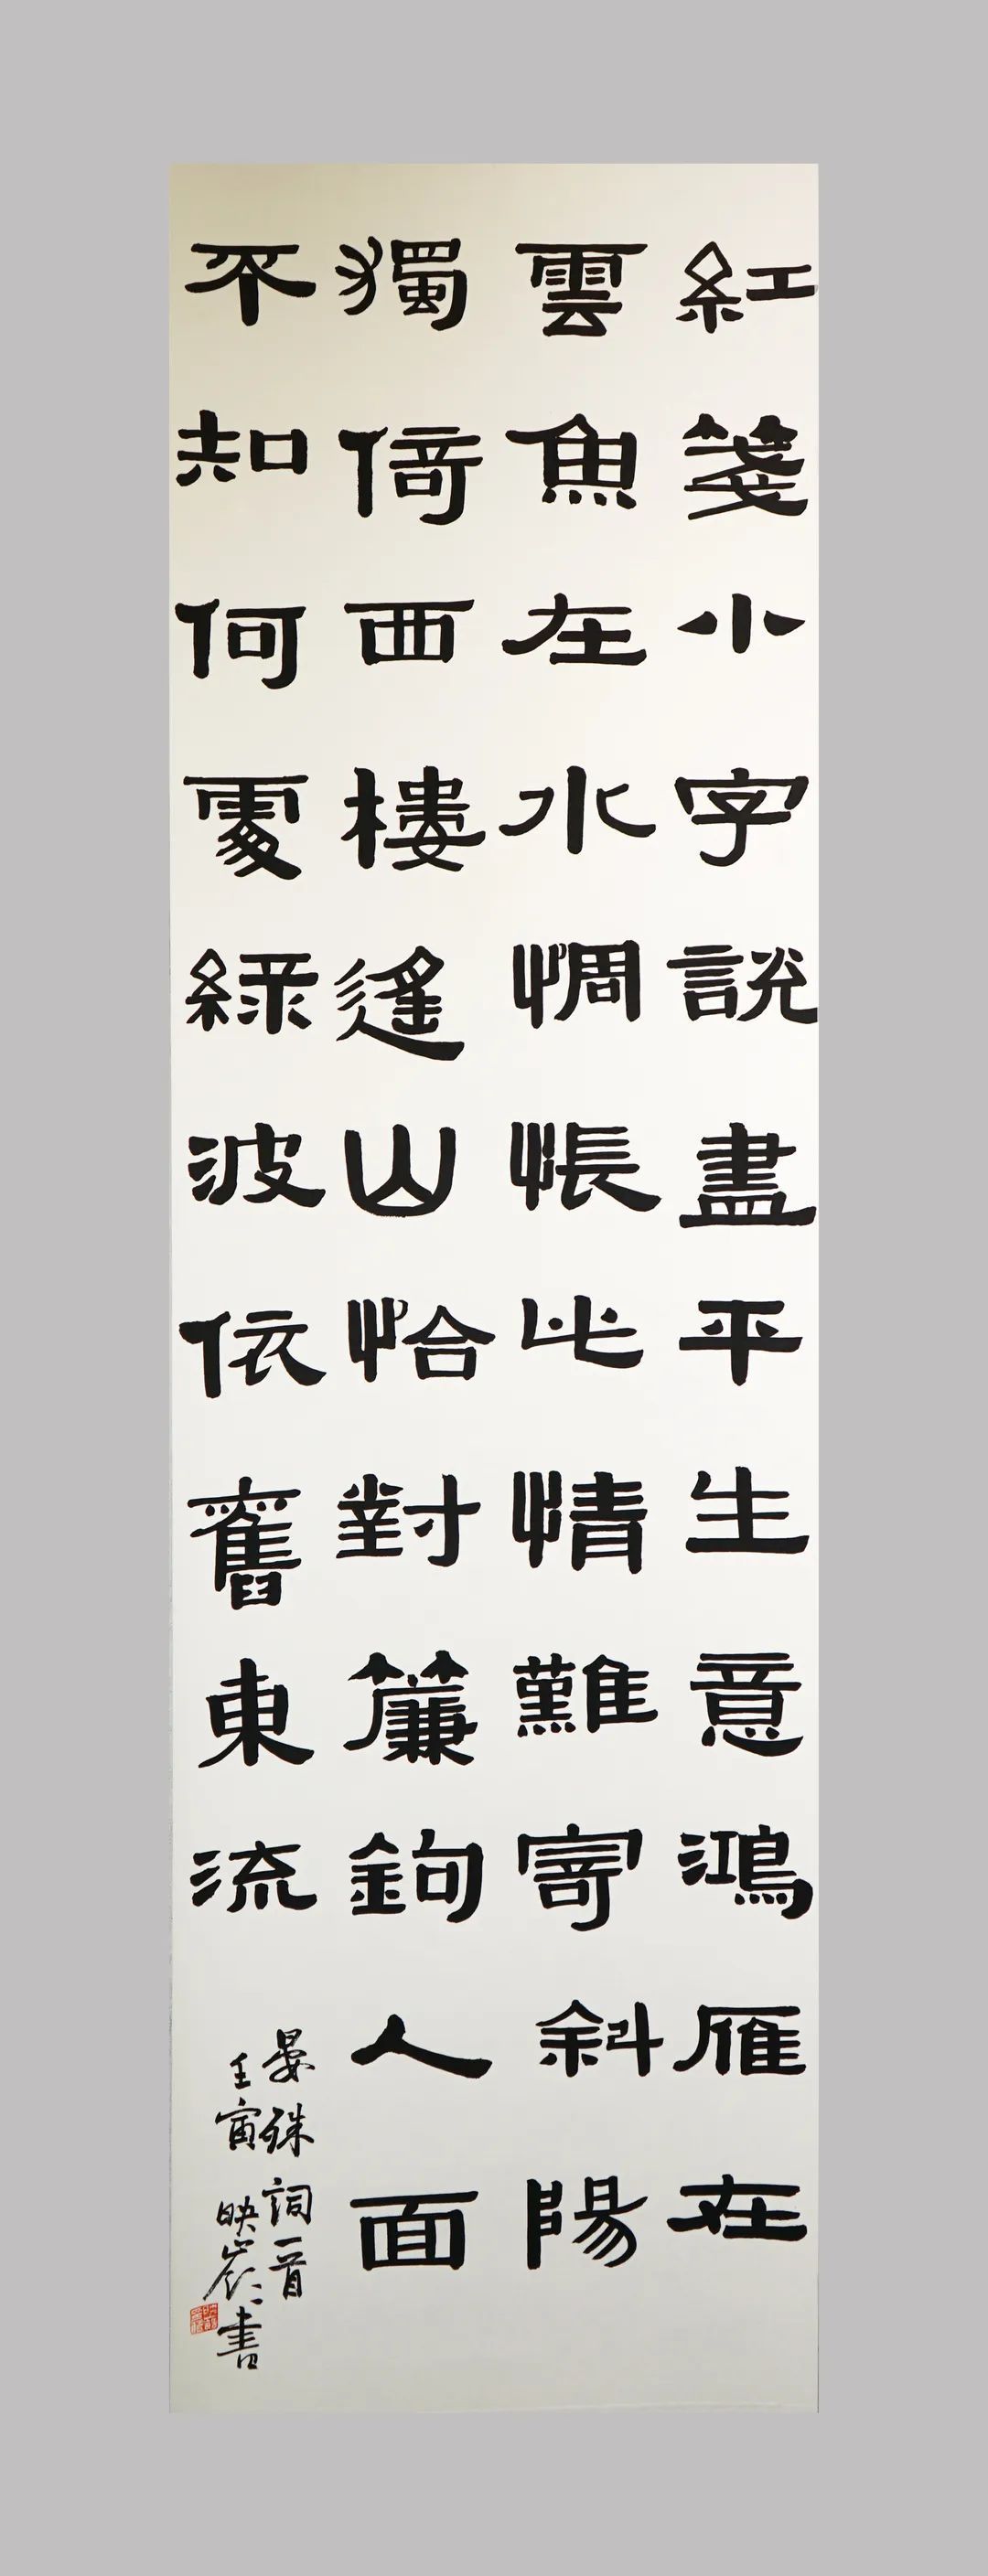 紅箋小字說盡平生意鴻雁在
雲魚在水惆悵此情難寄斜陽
獨倚西樓遙山恰對簾鉤人面
不知何處綠波依舊東流
晏殊詞一首
壬寅映書